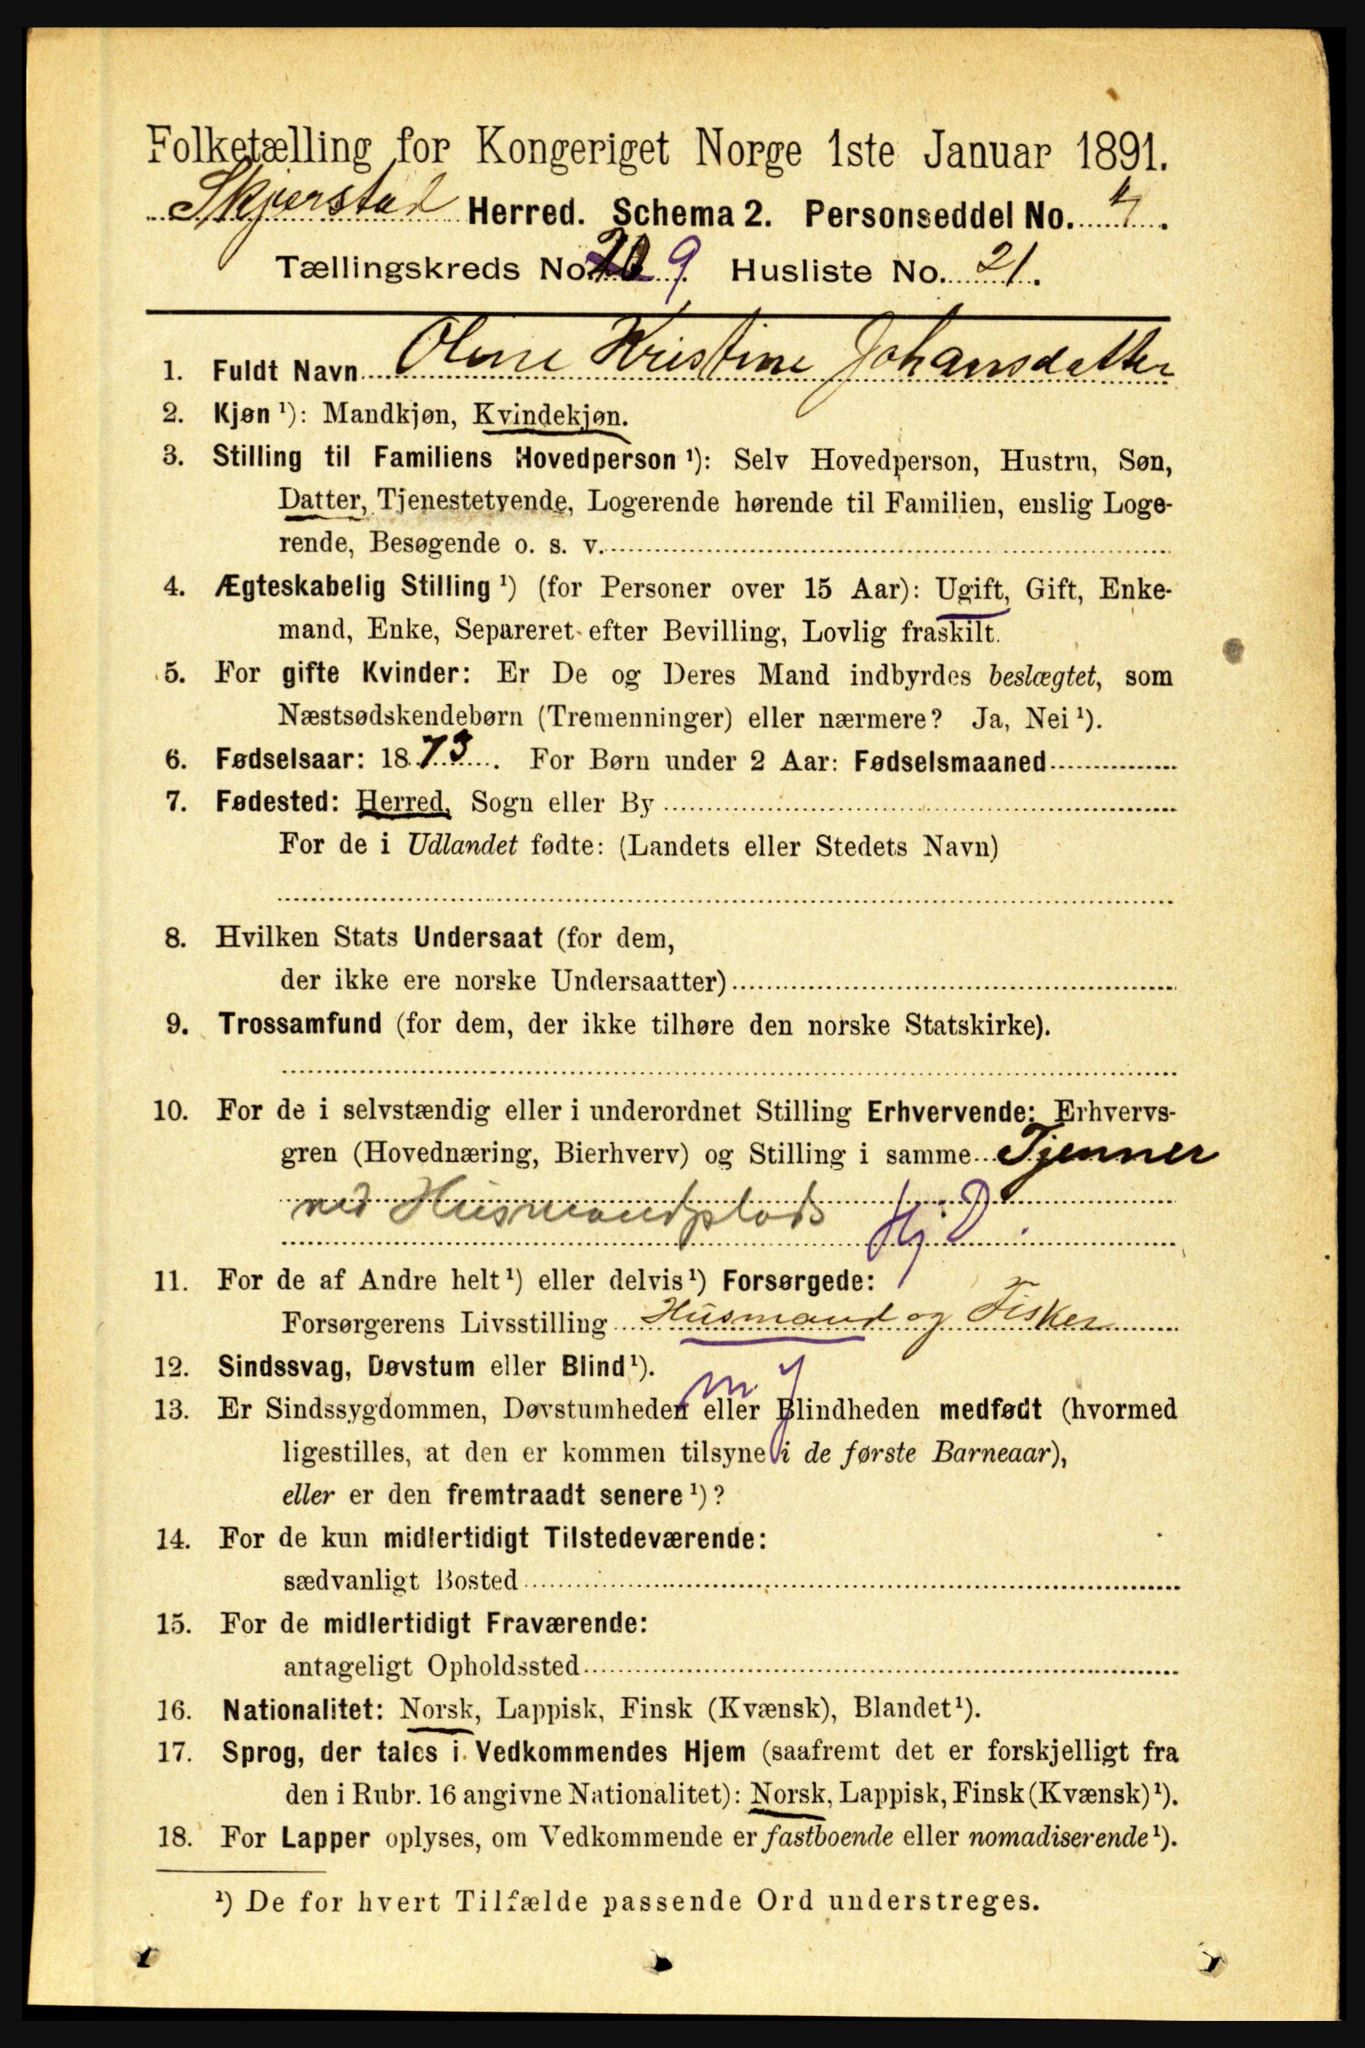 Folketælling for Kongeriget Norge 1ste Januar 1891.
Skjerstad Herred. Schema 2. Personseddel No. 4.
Tællingskreds No. 9 Husliste No. 21.
1. Fuldt Navn Oline Kristine Johansdatter
2. Kjøn ¹): Mandkjøn, Kvindekjøn.
3. Stilling til Familiens Hovedperson ¹): Selv Hovedperson, Hustru, Søn,
Datter, Tjenestetyende, Logerende hørende til Familien, enslig Loge-
rende, Besøgende o. s. v.
4. Ægteskabelig Stilling ¹) (for Personer over 15 Aar): Ugift, Gift, Enke-
mand, Enke, Separeret efter Bevilling, Lovlig fraskilt.
5. For gifte Kvinder: Er De og Deres Mand indbyrdes beslægtet, som
Næstsødskendebørn (Tremenninger) eller nærmere? Ja, Nei ¹).
6. Fødselsaar: 1873. For Børn under 2 Aar: Fødselsmaaned
7. Fødested: Herred, Sogn eller By
For de i Udlandet fødte: (Landets eller Stedets Navn)
8. Hvilken Stats Undersaat (for dem,
der ikke ere norske Undersaatter)
9. Trossamfund (for dem, der ikke tilhøre den norske Statskirke).
10. For de i selvstændig eller i underordnet Stilling Erhvervende: Erhvervs-
gren (Hovednæring, Bierhverv) og Stilling i samme Tjenner
ved Husmandsplads Hj. D.
11. For de af Andre helt ¹) eller delvis ¹) Forsørgede:
Forsørgerens Livsstilling Husmand og Fisker
12. Sindssvag, Døvstum eller Blind ¹).
m j
13. Er Sindssygdommen, Døvstumheden eller Blindheden medfødt (hvormed
ligestilles, at den er kommen tilsyne i de første Barneaar),
eller er den fremtraadt senere ¹)?
14. For de kun midlertidigt Tilstedeværende:
sædvanligt Bosted
15. For de midlertidigt Fraværende:
antageligt Opholdssted
16. Nationalitet: Norsk, Lappisk, Finsk (Kvænsk), Blandet ¹).
17. Sprog, der tales i Vedkommendes Hjem (saafremt det er forskjelligt fra
den i Rubr. 16 angivne Nationalitet): Norsk, Lappisk, Finsk (Kvænsk) ¹).
18. For Lapper oplyses, om Vedkommende er fastboende eller nomadiserende ¹).
¹) De for hvert Tilfælde passende Ord understreges.